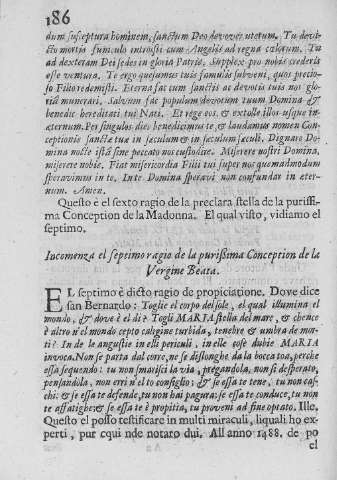 186
dum susceptura hominem, sanctum Deo devovens uterum. Tu devi-
cto mortis funiculo introisti cum Angelis ad regna cælorum. Tu
ad dexteram Dei sedes in gloria Patris. Supplex pro nobis crederis
esse ventura. Te ergo quesumus tuis famulis subveni, quos precio-
so Filio redemisti. Eterna fac cum sanctis ac devotis tuis nos glo-
ria munerari. Salvum fac populum devotum tuum Domina &
benedic hereditati tui Nati. Et rege eos, & extolle illos usque in
æternum. Per singulos dies benedicimus te, & laudamus nomen Con-
ceptionis sanctæ tuæ in sæculum & in sæculum sæculi. Dignare Do-
mina nocte ista sine peccato nos custodire. Miserere nostri Domina,
miserere nobis. Fiat misericordia Filii tui super nos quemadmodum
speravimus in te. In te Domina speravi non confundar in eter-
num. Amen.
Questo e el sexto ragio de la preclara stella de la purissi-
ma Conception de la Madonna. El qual visto, vidiamo el
septimo.
Incomenza el septimo ragio de la purissima Conception de la
Vergine Beata.
EL septimo è dicto ragio de propiciatione. Dove dice
san Bernardo: Toglie el corpo del sole, el qual illumina el
mondo, & dove è el dì? Togli MARIA stella del mare, & che nce
è altro n'el mondo cepto caligine turbida, tenebre & umbra de mor-
ti? In de le angustie in elli periculi, in elle cose dubie MARIA
invoca. Non se parta dal core, ne se dislonghe da la bocca toa, perche
essa sequendo: tu non smarisci la via, pregandola, non si desperato,
pensandola, non erri n'el to consiglio; & se essa te tene, tu non cas-
chi: & se essa te defende, tu non hai pagura: se essa te conduce, tu non
te affatighe: & se essa te è propitia, tu proveni ad fine optato. Ille.
Questo el posso testificare in multi miraculi, liquali ho ex-
perti, pur cqui nde notaro dui. All anno 1488. de po
el